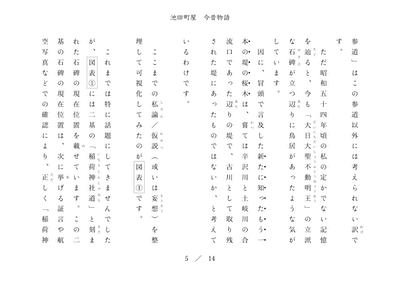 池田町屋　今昔物語
参道」はこの参道以外には考えられない訳で
す。
　ただ昭和五十四年頃の私の定かでない記憶
を辿ると、今も「大日大聖不動明王」の立派
な石碑が立つ辺りに鳥居があったような気が
しています。
　因に、冒頭で言及した新たに知ったもう一
本の堤の桜木は、嘗ては辛沢川と土岐川の合
流口であった辺りの堤で、古川として取り残
された堤にあったものではないか、と考えて
いるわけです。
　ここまでの私論／仮説（或いは妄想）を整
理して可視化してみたのが図表①です。
　これまでは特に話題にしてきませんでした
が、図表①には二基の「稲荷神社道」と刻ま
れた石碑の現在位置を載せています。この二
基の石碑の現在位置は、次に挙げる証言や航
空写真などでの確認により、正しく「稲荷神
5 ／ 14